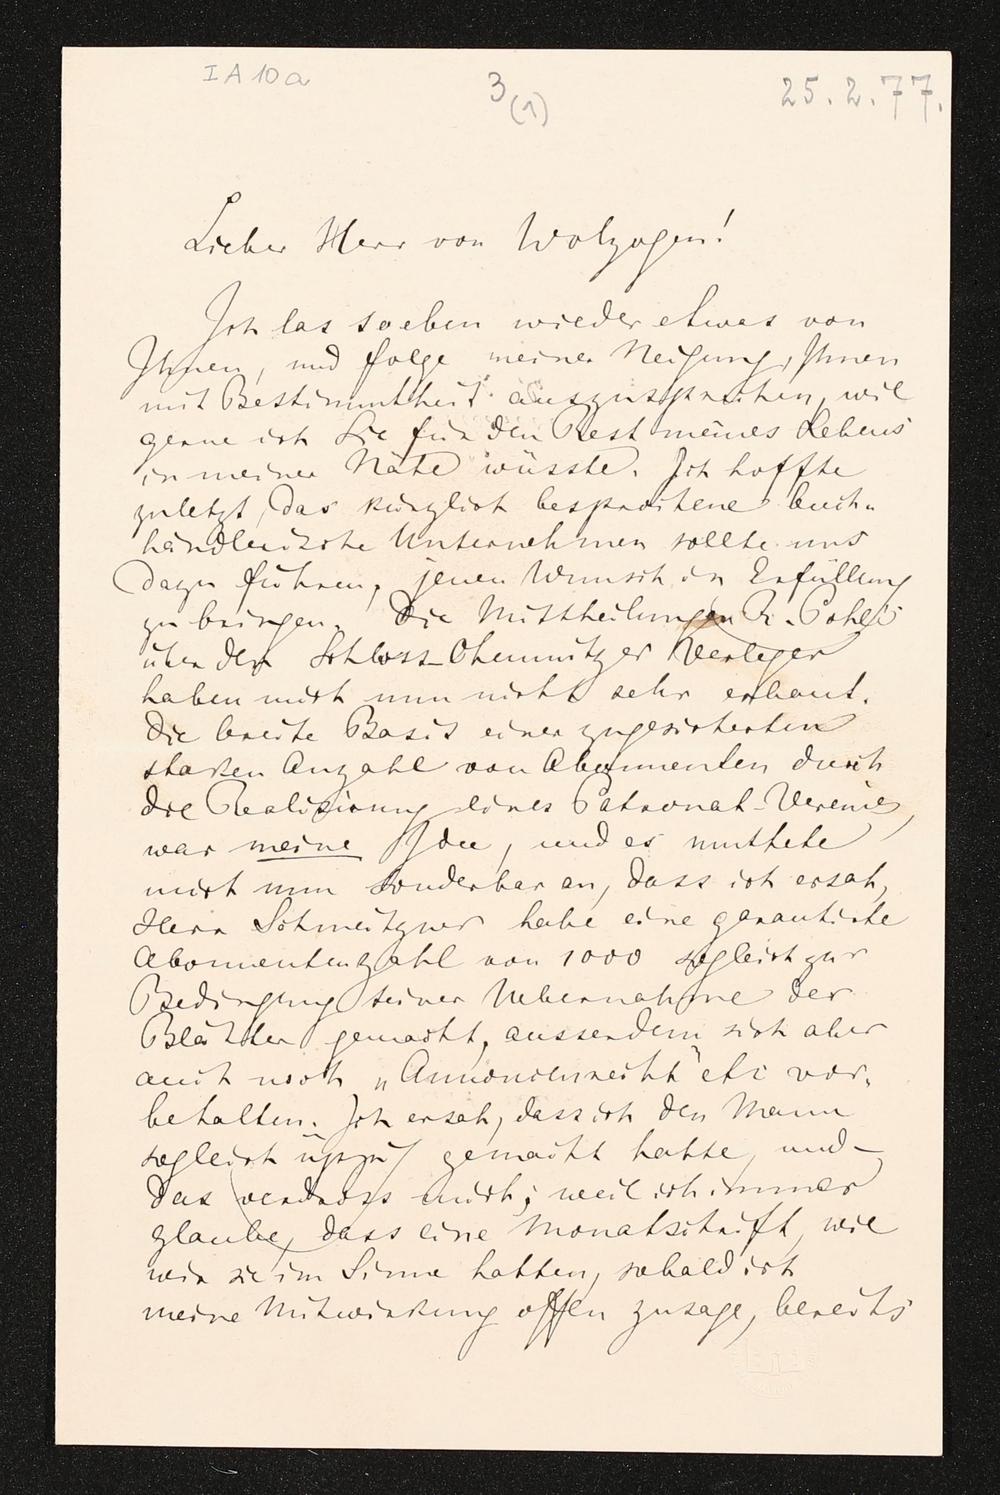 I A 10 a
3
(1)
25.2.77.
Lieber Herr von Wolzogen!
Ich las soeben wieder etwas von
Ihnen, und folge meiner Neigung, Ihnen
mit Bestimmtheit auszusprechen, wie
gerne ich Sie für den Rest meines Lebens
in meiner Nähe wüsste. Ich hoffte
zuletzt, das kürzlich besprochene buch-
händlerische Unternehmen sollte uns
dazu führen, jenen Wunsch in Erfüllung
zu bringen. Die Mittheilungen R. Pohl's
über den Schloss-Chemnitzer Verleger
haben mich nun nicht sehr erbaut.
Die breite Basis einer zugesicherten
starken Anzahl von Abonnenten durch
die Realisirung eines Patronat-Vereines,
war meine Idee, und es muthete
mich nun sonderbar an, dass ich ersah,
Herr Schmeitzner habe eine garantirte
Abonnentenzahl von 1000 sogleich zur
Bedingung seiner Uebernahme der
Blätter gemacht, ausserdem sich aber
auch noch „Annoncenrecht" etc vor-
behalten. Ich ersah, dass ich den Mann
sogleich üppig gemacht hatte, und –
das verdross mich; weil ich immer
glaube, dass eine Monatschrift, wie
wir sie im Sinne hatten, sobald ich
meine Mitwirkung offen zusage, bereits